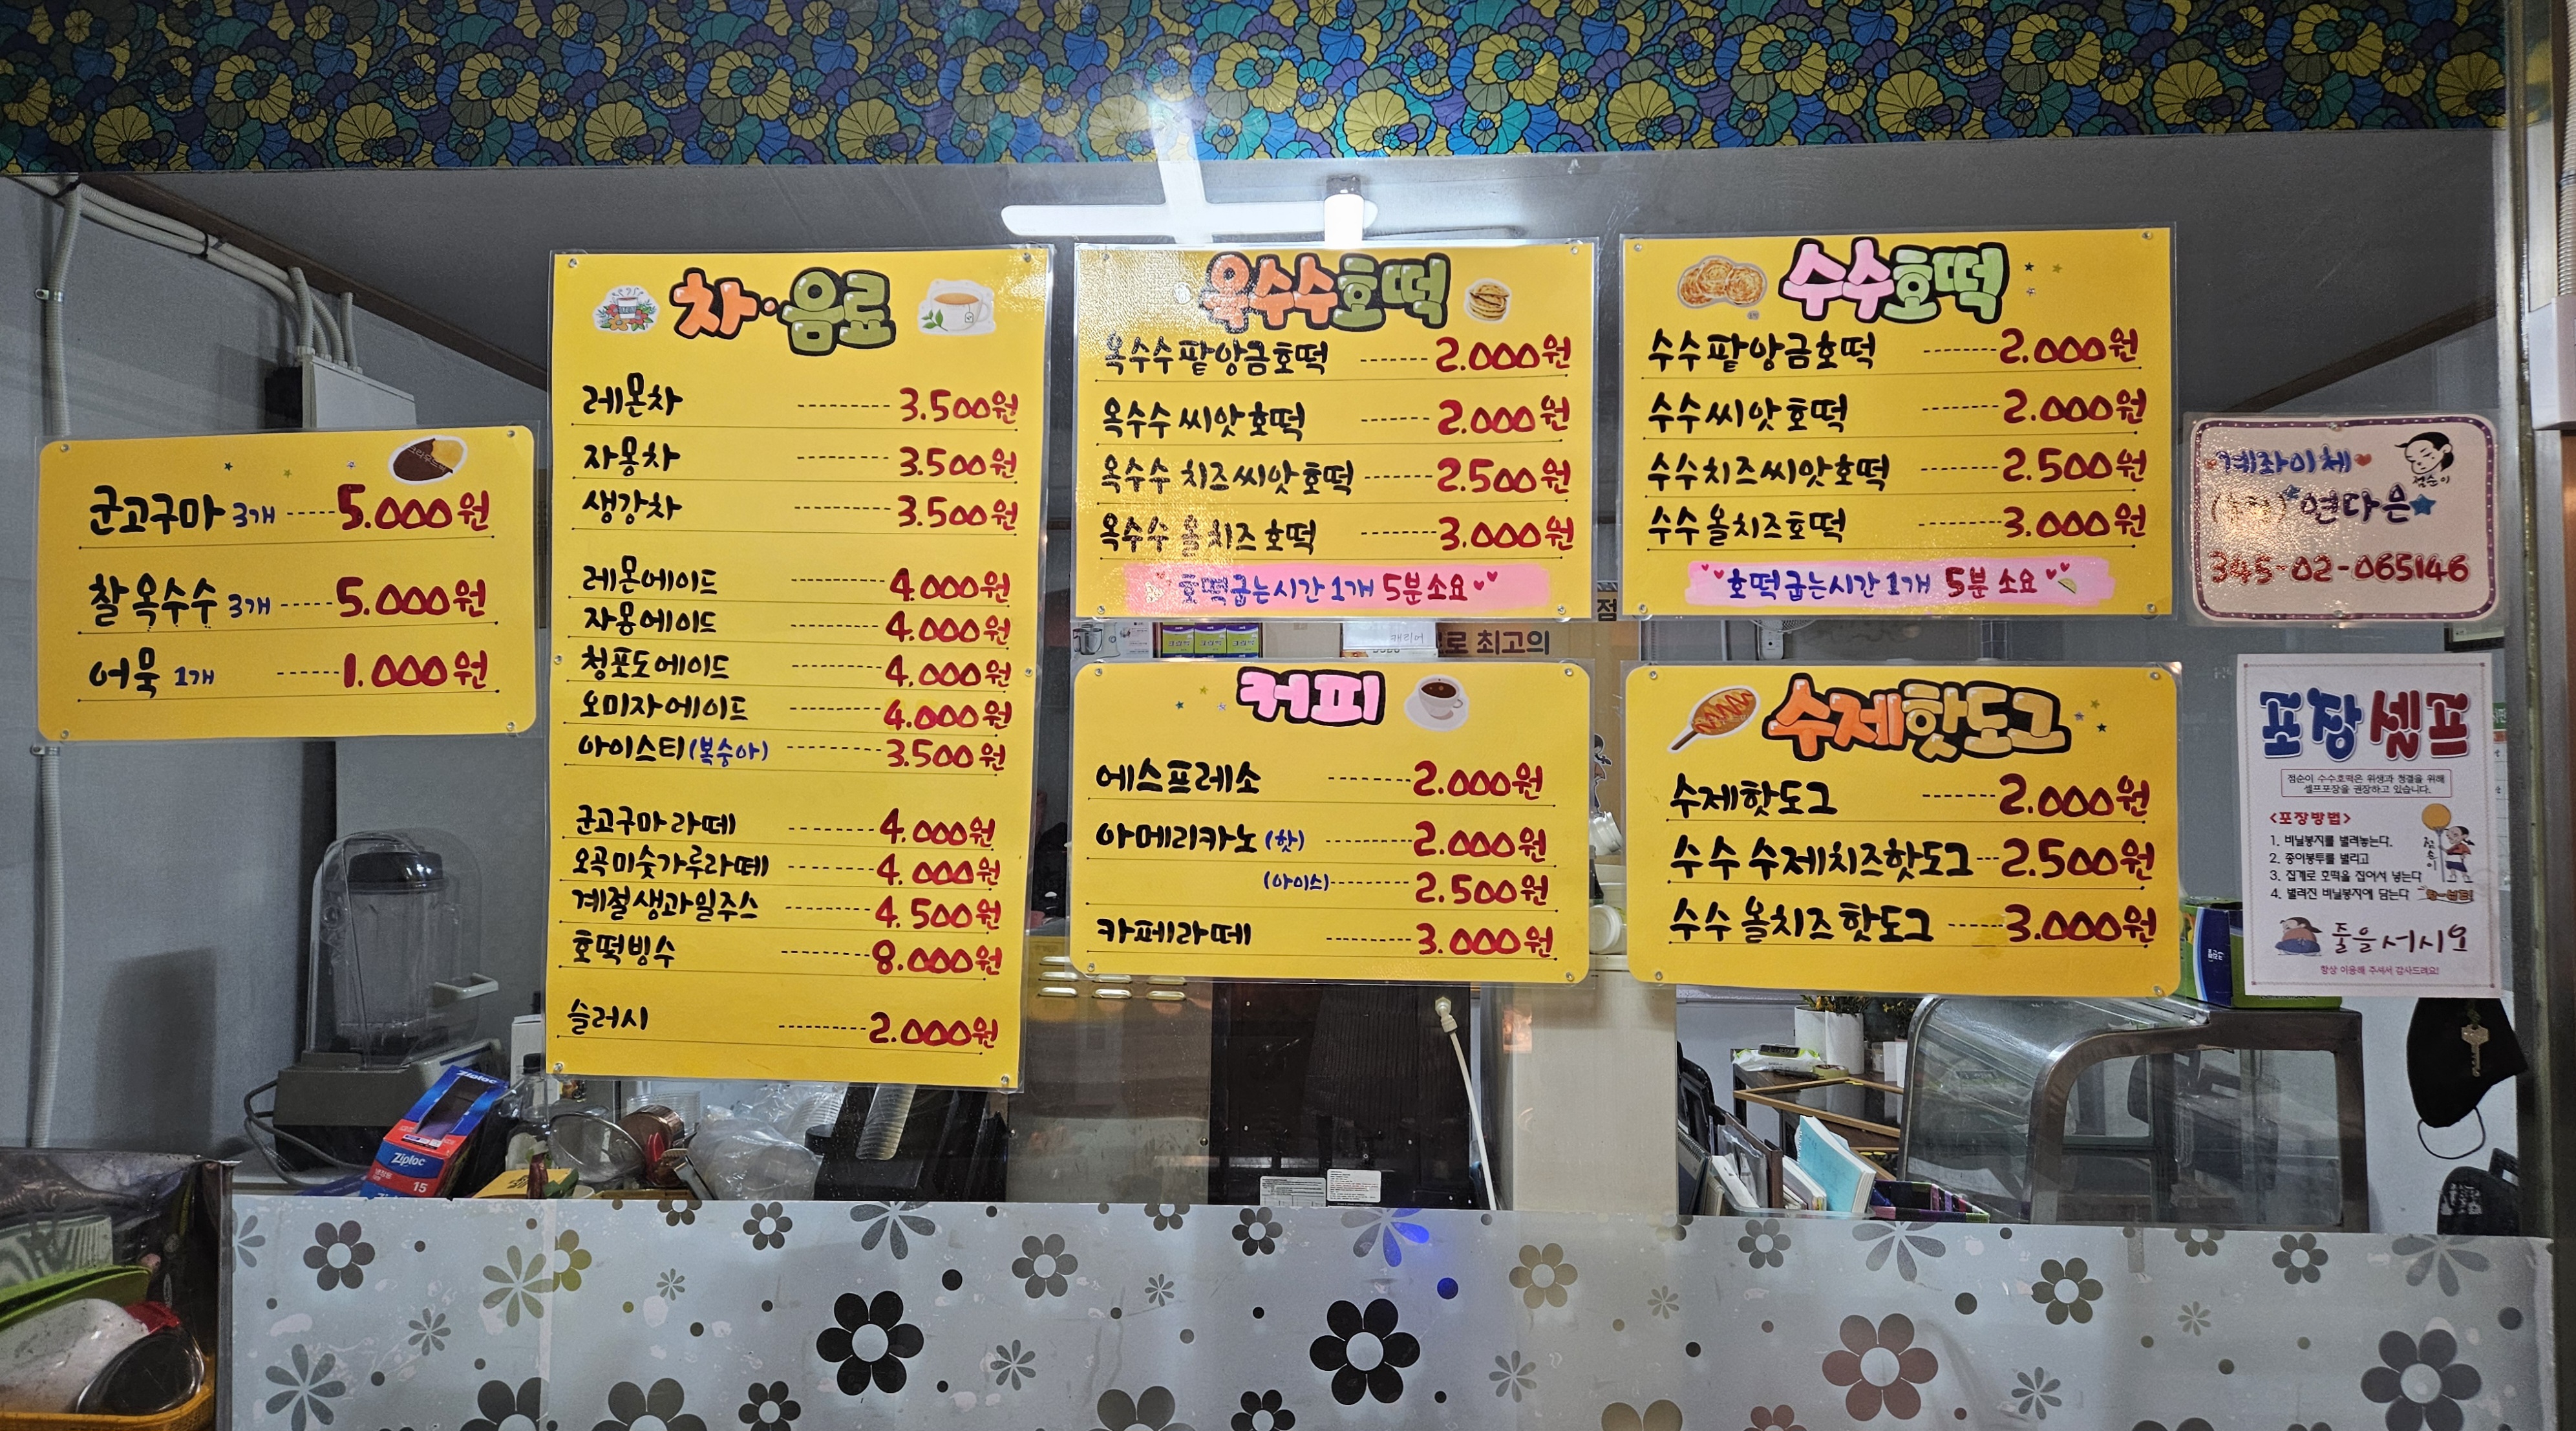 군고구마 3개 -----5.000원
찰옥수수 3개 -----5.000원
어묵 1개 -----1.000원
차·음료
레몬차 ---------3.500원
자몽차 ---------3.500원
생강차 ---------3.500원
레몬에이드 ---------4.000원
자몽에이드 ---------4.000원
청포도에이드 ---------4.000원
오미자에이드 ---------4.000원
아이스티(복숭아) ---------3.500원
군고구마라떼 ---------4.000원
오곡미숫가루라떼 ---------4.000원
계절생과일주스 ---------4.500원
호떡빙수 ---------8.000원
슬러시 ---------2.000원
옥수수호떡
옥수수팥앙금호떡 -------2.000원
옥수수씨앗호떡 -------2.000원
옥수수 치즈씨앗호떡 -------2.500원
옥수수 올치즈호떡 -------3.000원
호떡굽는시간 1개 5분소요
커피
에스프레소 --------2.000원
아메리카노 (핫) -------2.000원
(아이스)--------2.500원
카페라떼 --------3.000원
수수호떡
수수팥앙금호떡 -------2.000원
수수씨앗호떡 -------2.000원
수수치즈씨앗호떡 -------2.500원
수수올치즈호떡 -------3.000원
호떡굽는시간 1개 5분 소요
수제핫도그
수제핫도그 -------2.000원
수수수제치즈핫도그---2.500원
수수올치즈핫도그 -----3.000원
계좌이체
점순이
연다은
345-02-065146
포장셀프
점순이 수수호떡은 위생과 청결을 위해
셀프포장을 권장하고 있습니다.
<포장방법>
1. 비닐봉지를 벌려놓는다.
2. 종이봉투를 벌리고
3. 집게로 호떡을 집어서 넣는다
4. 벌려진 비닐봉지에 담는다
점순이
줄을서시오
항상 이용해 주셔서 감사드려요!
점
로 최고의
캐리어
Ziploc
Ziploc
15